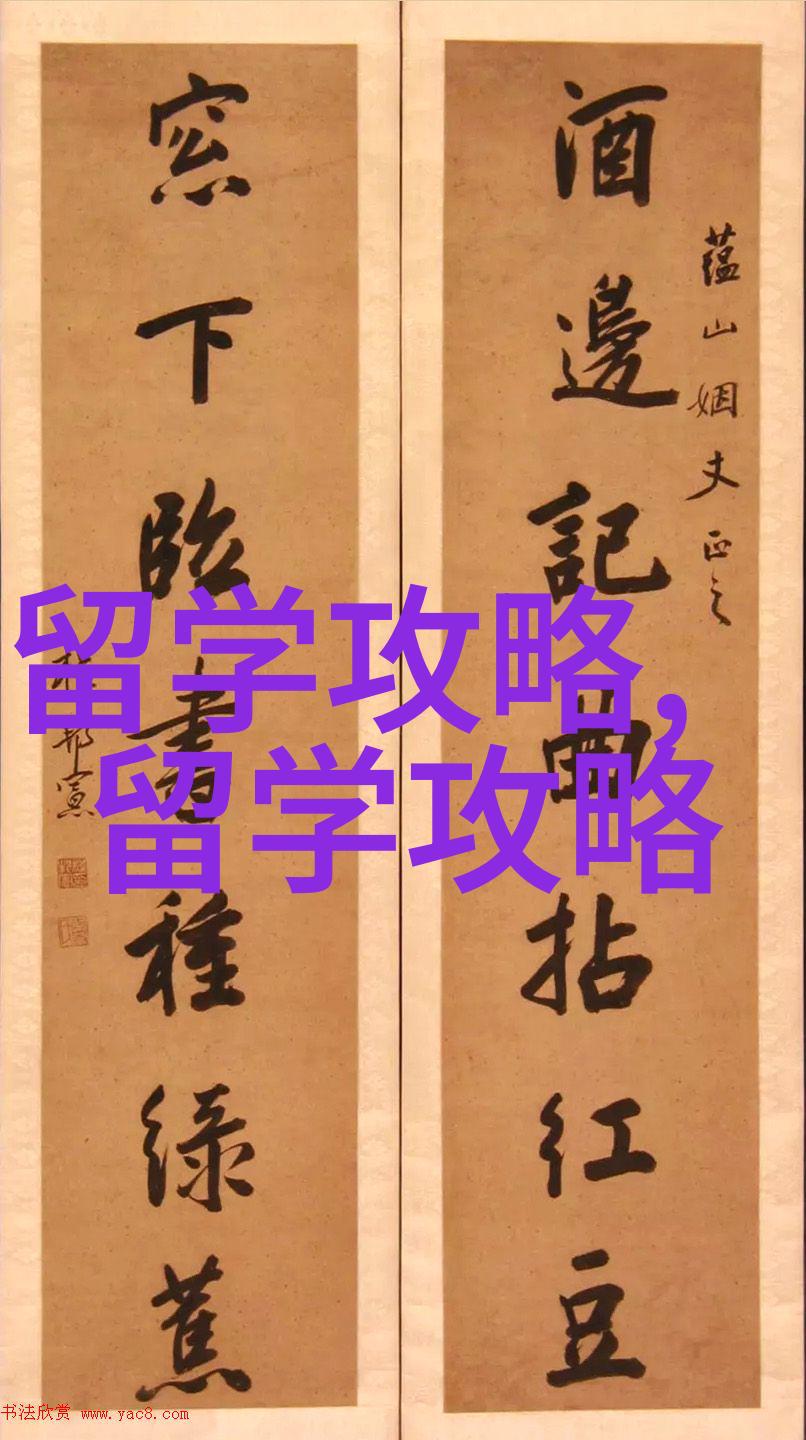 酒邊記曲拈紅豆
蘊山姻丈正之
窓下臨書種綠蕉
留学攻略,
留学攻略
书法欣赏 www.yac8.com